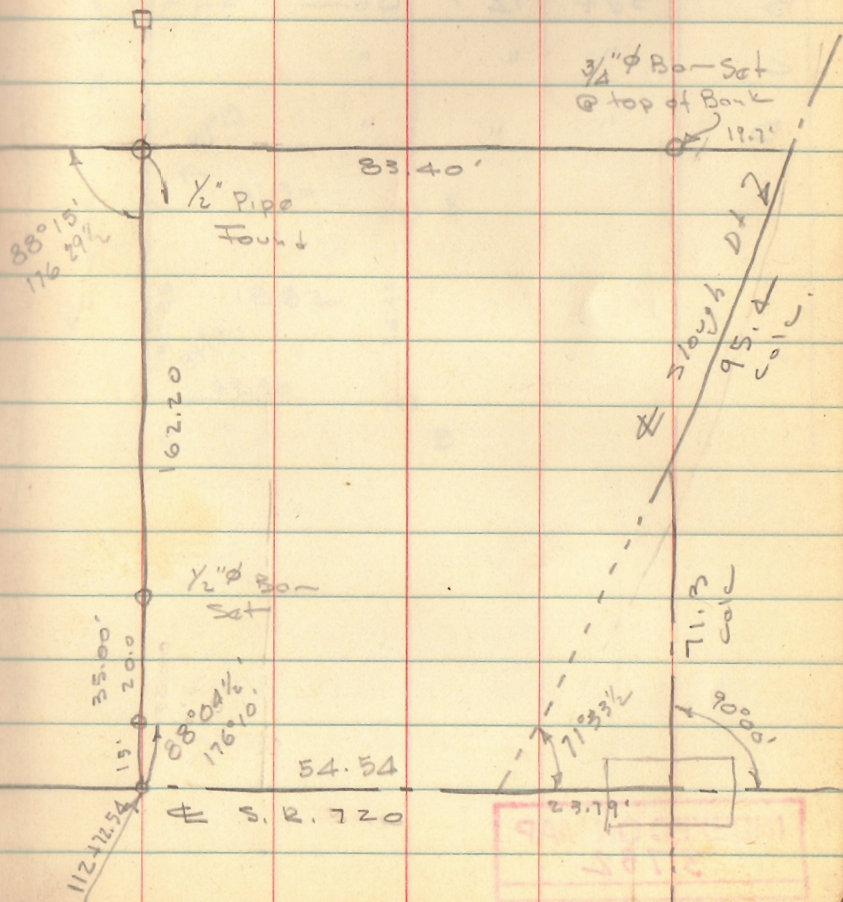 3/4"⌀ Bar Set
@ top of Bank
19.7'
83.40'
1/2" Pipe
Found
88°15'
176 29 1/2
℄ Slough
95.4
calc.
162.20
1/2"⌀ Bar
Set
71.3
calc
35.00'
20.0
15'
88°04 1/2'
176°10'
71°33 1/2
90°00'
54.54
23.79'
℄ S.R. 720
112+72.54